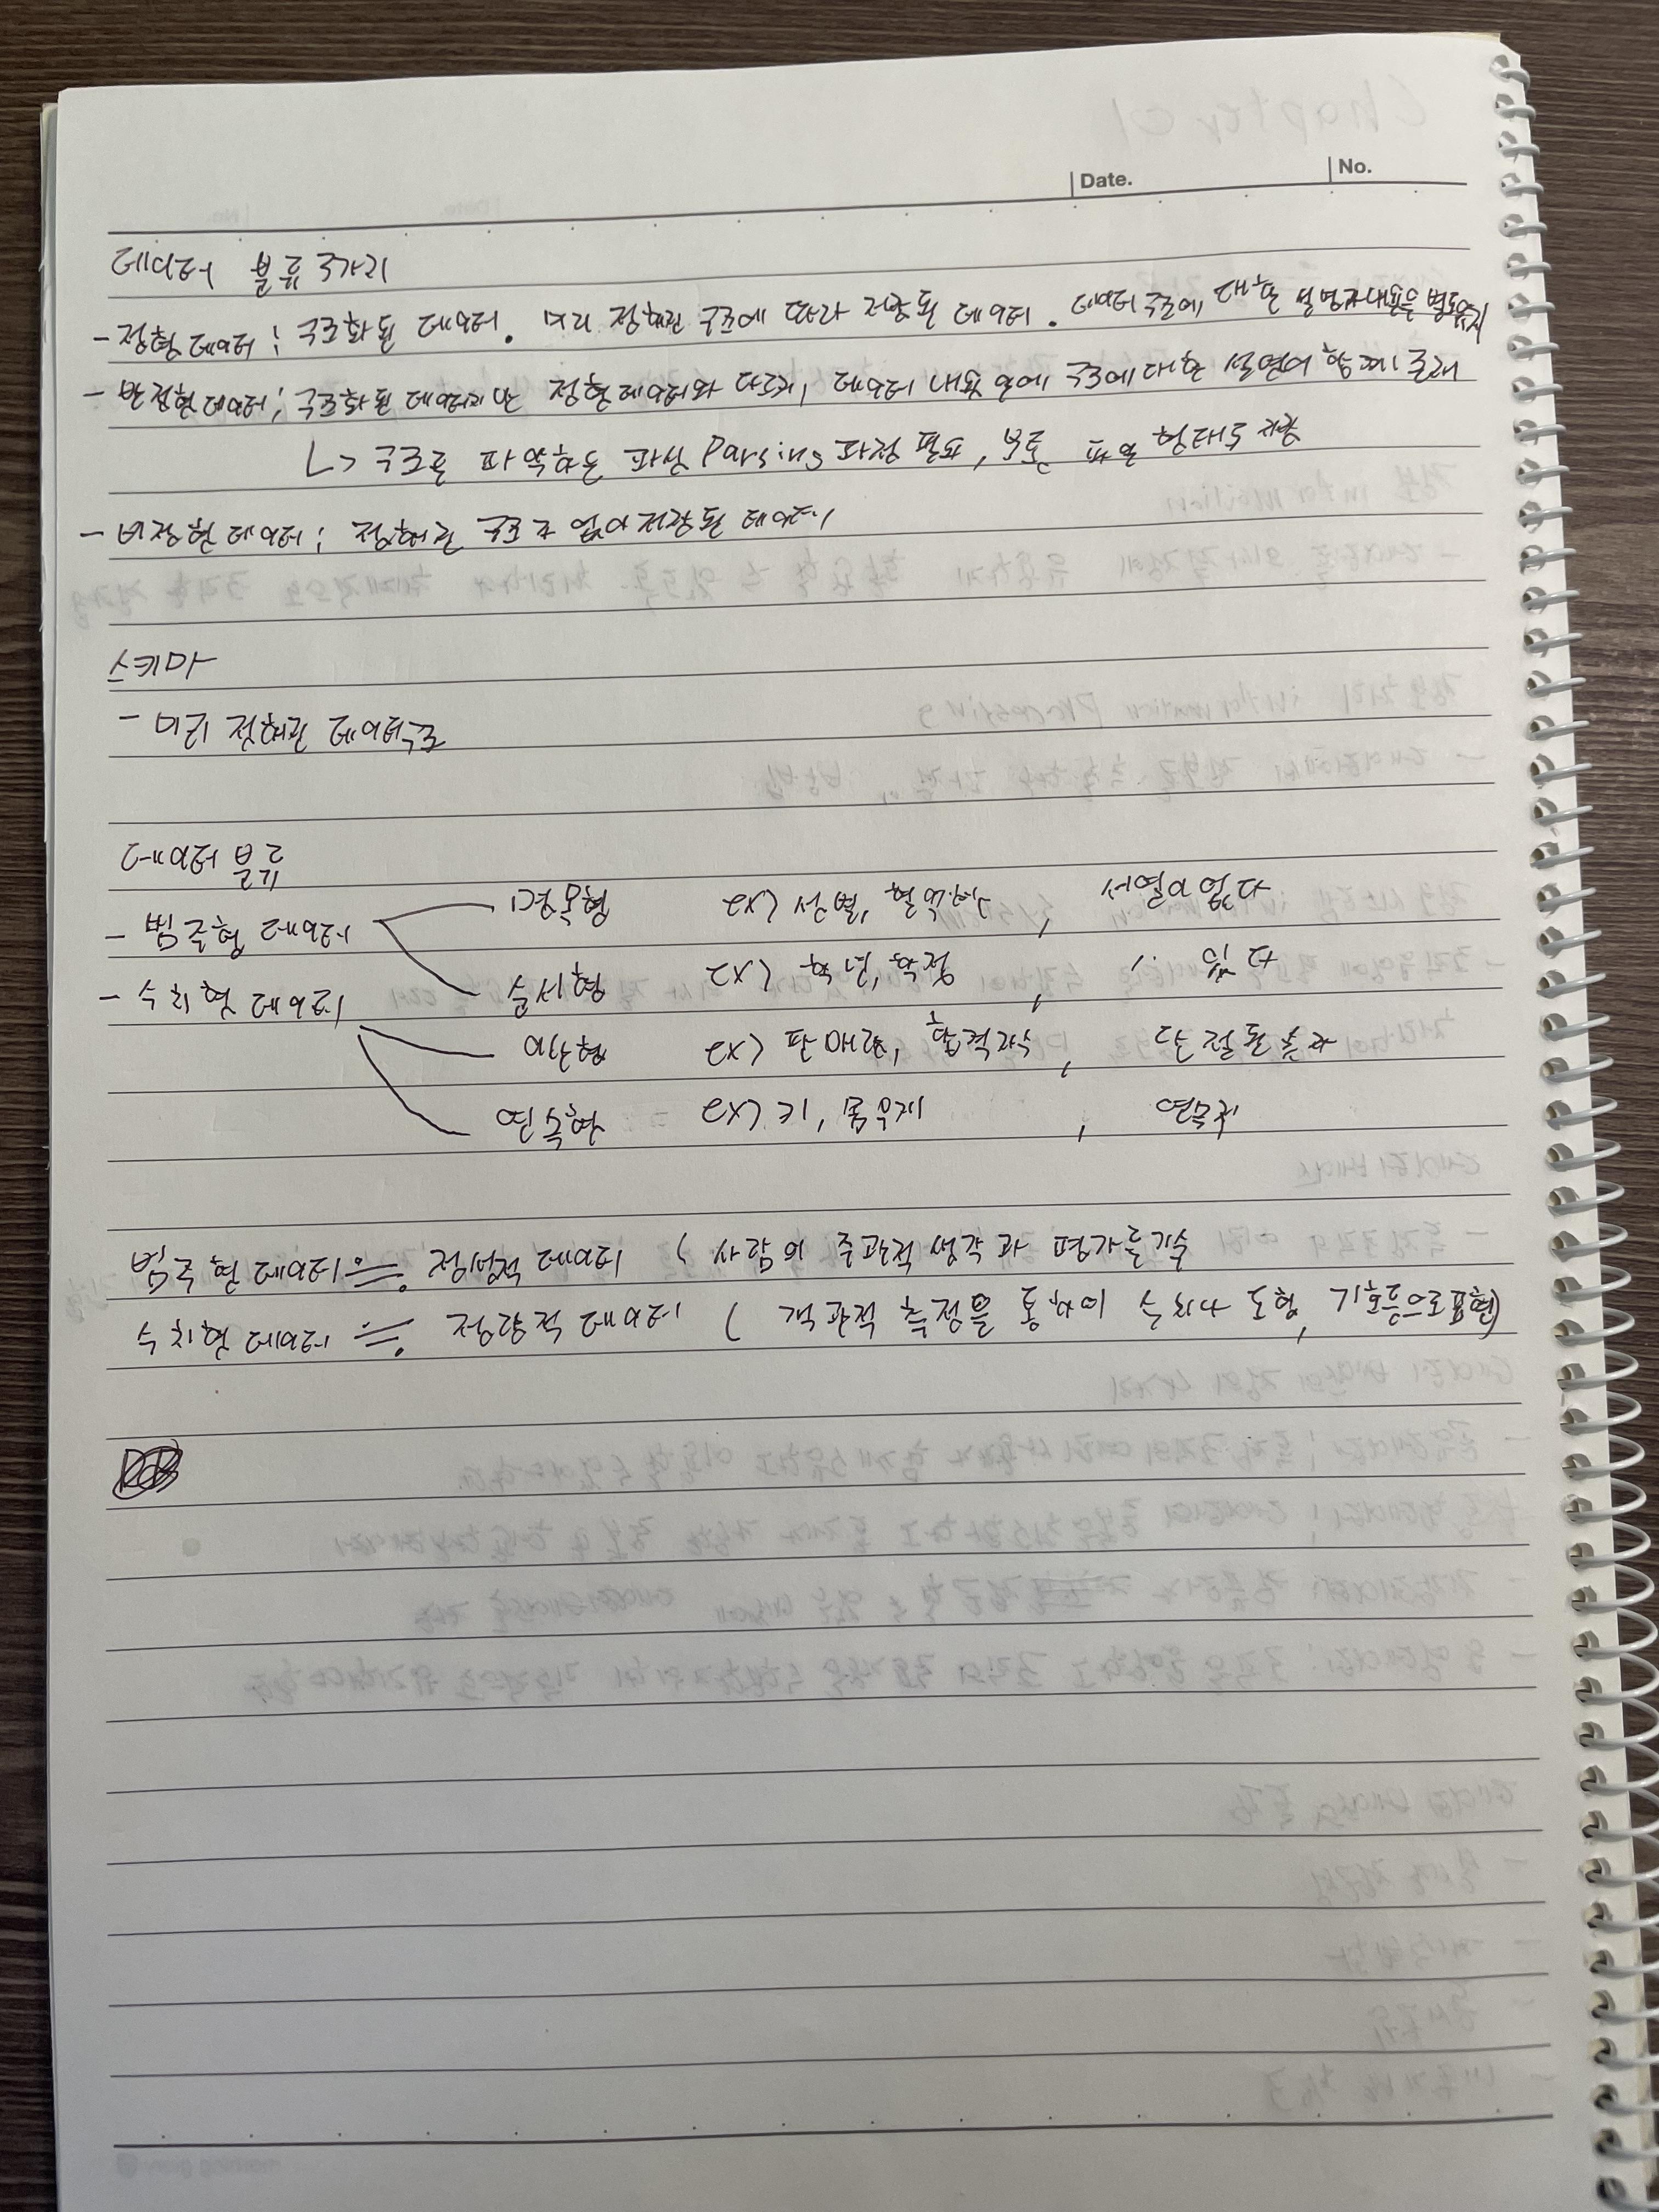 Date.
No.
데이터 분류 3가지
- 정형 데이터 : 구조화된 데이터. 미리 정해진 구조에 따라 저장된 데이터. 데이터 구조에 대한 설명과 내용은 별도유지
- 반정형 데이터; 구조화된 데이터지만 정형데이터와 다르게, 데이터 내용 안에 구조에 대한 설명이 함께 존재
↳ 구조를 파악하는 파싱 Parsing 과정 필요, 보통 파일 형태로 저장
- 비정형 데이터; 정해진 구조 없이 저장된 데이터
스키마
- 미리 정해진 데이터구조
데이터 분류
- 범주형 데이터
명목형 ex) 성별, 혈액형, 서열이 없다
순서형 ex) 학년, 학점, 〃 있다
- 수치형 데이터
이산형 ex) 판매량, 합격자수, 단절된 숫자
연속형 ex) 키, 몸무게, 연속적
범주형 데이터 ≒ 정성적 데이터 ( 사람의 주관적 생각과 평가를 기술
수치형 데이터 ≒ 정량적 데이터 ( 객관적 측정을 통하여 수치나 도형, 기호등으로 표현)